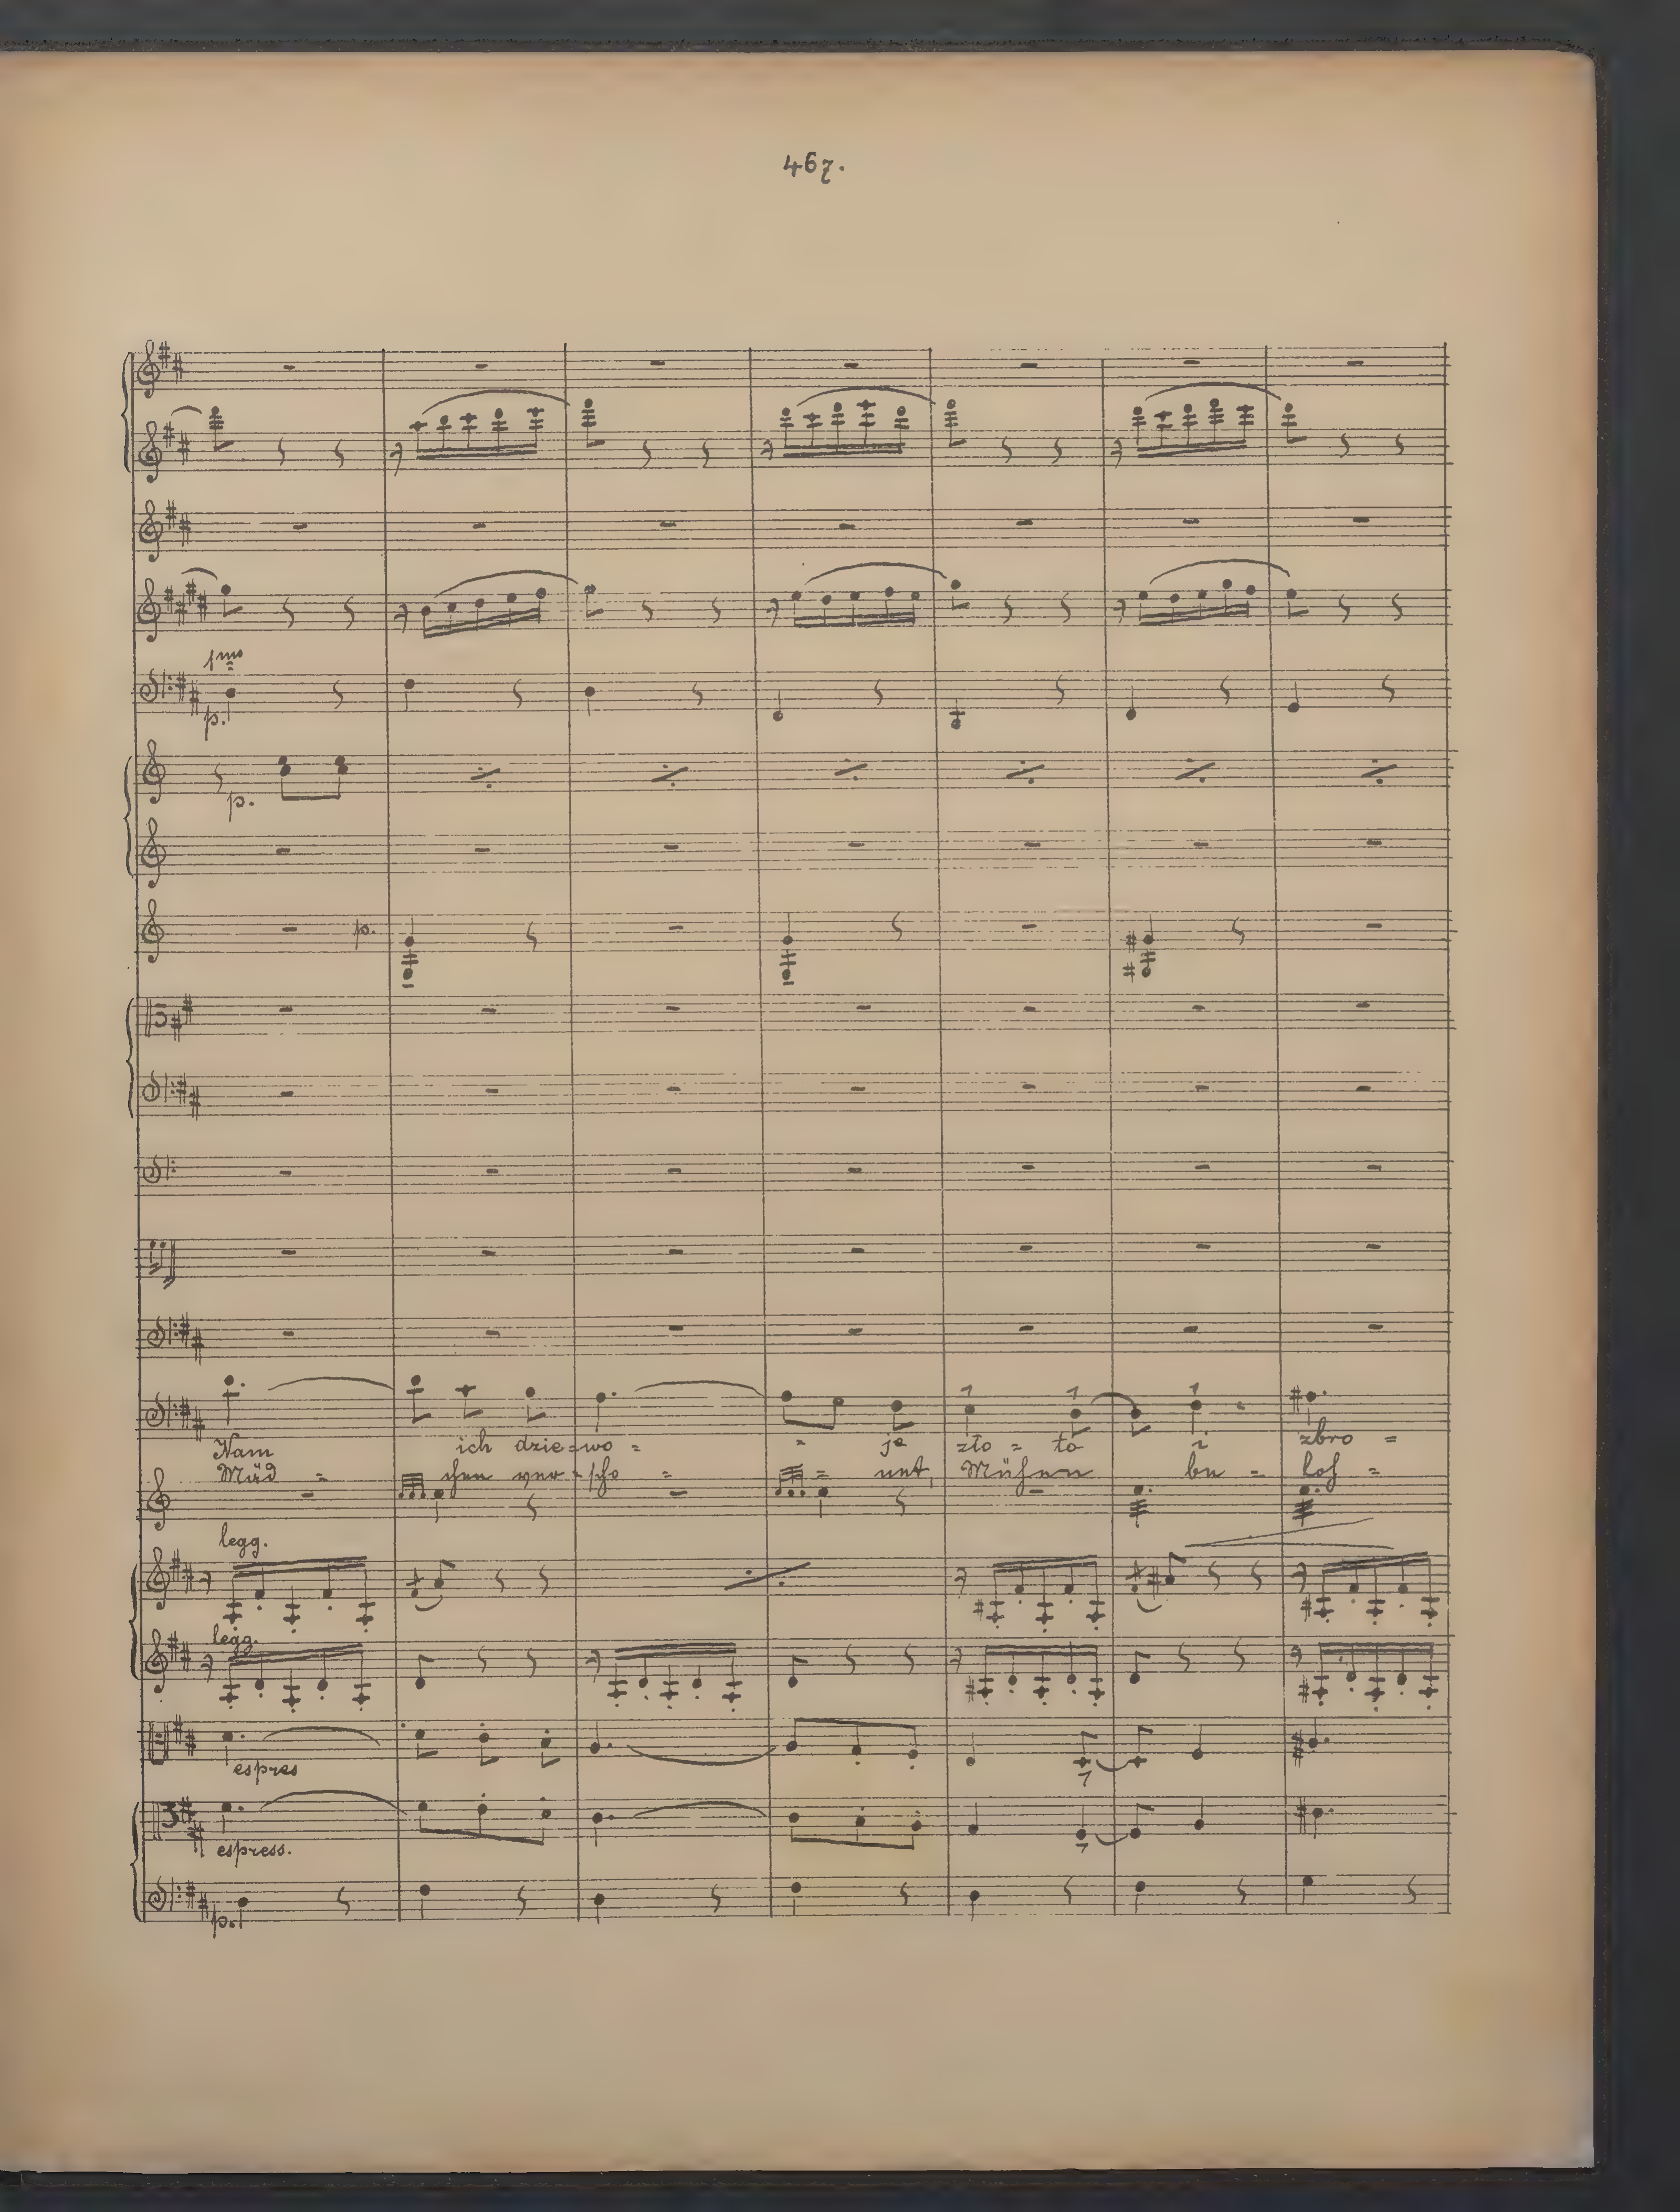 467.
1mo
p.
p.
p.
Nam ich dzie = wo = = je zło = to i zbro =
Mäd = chen ver = scho = = net, Mühen be = loh =
legg.
legg.
espres
espress.
p.